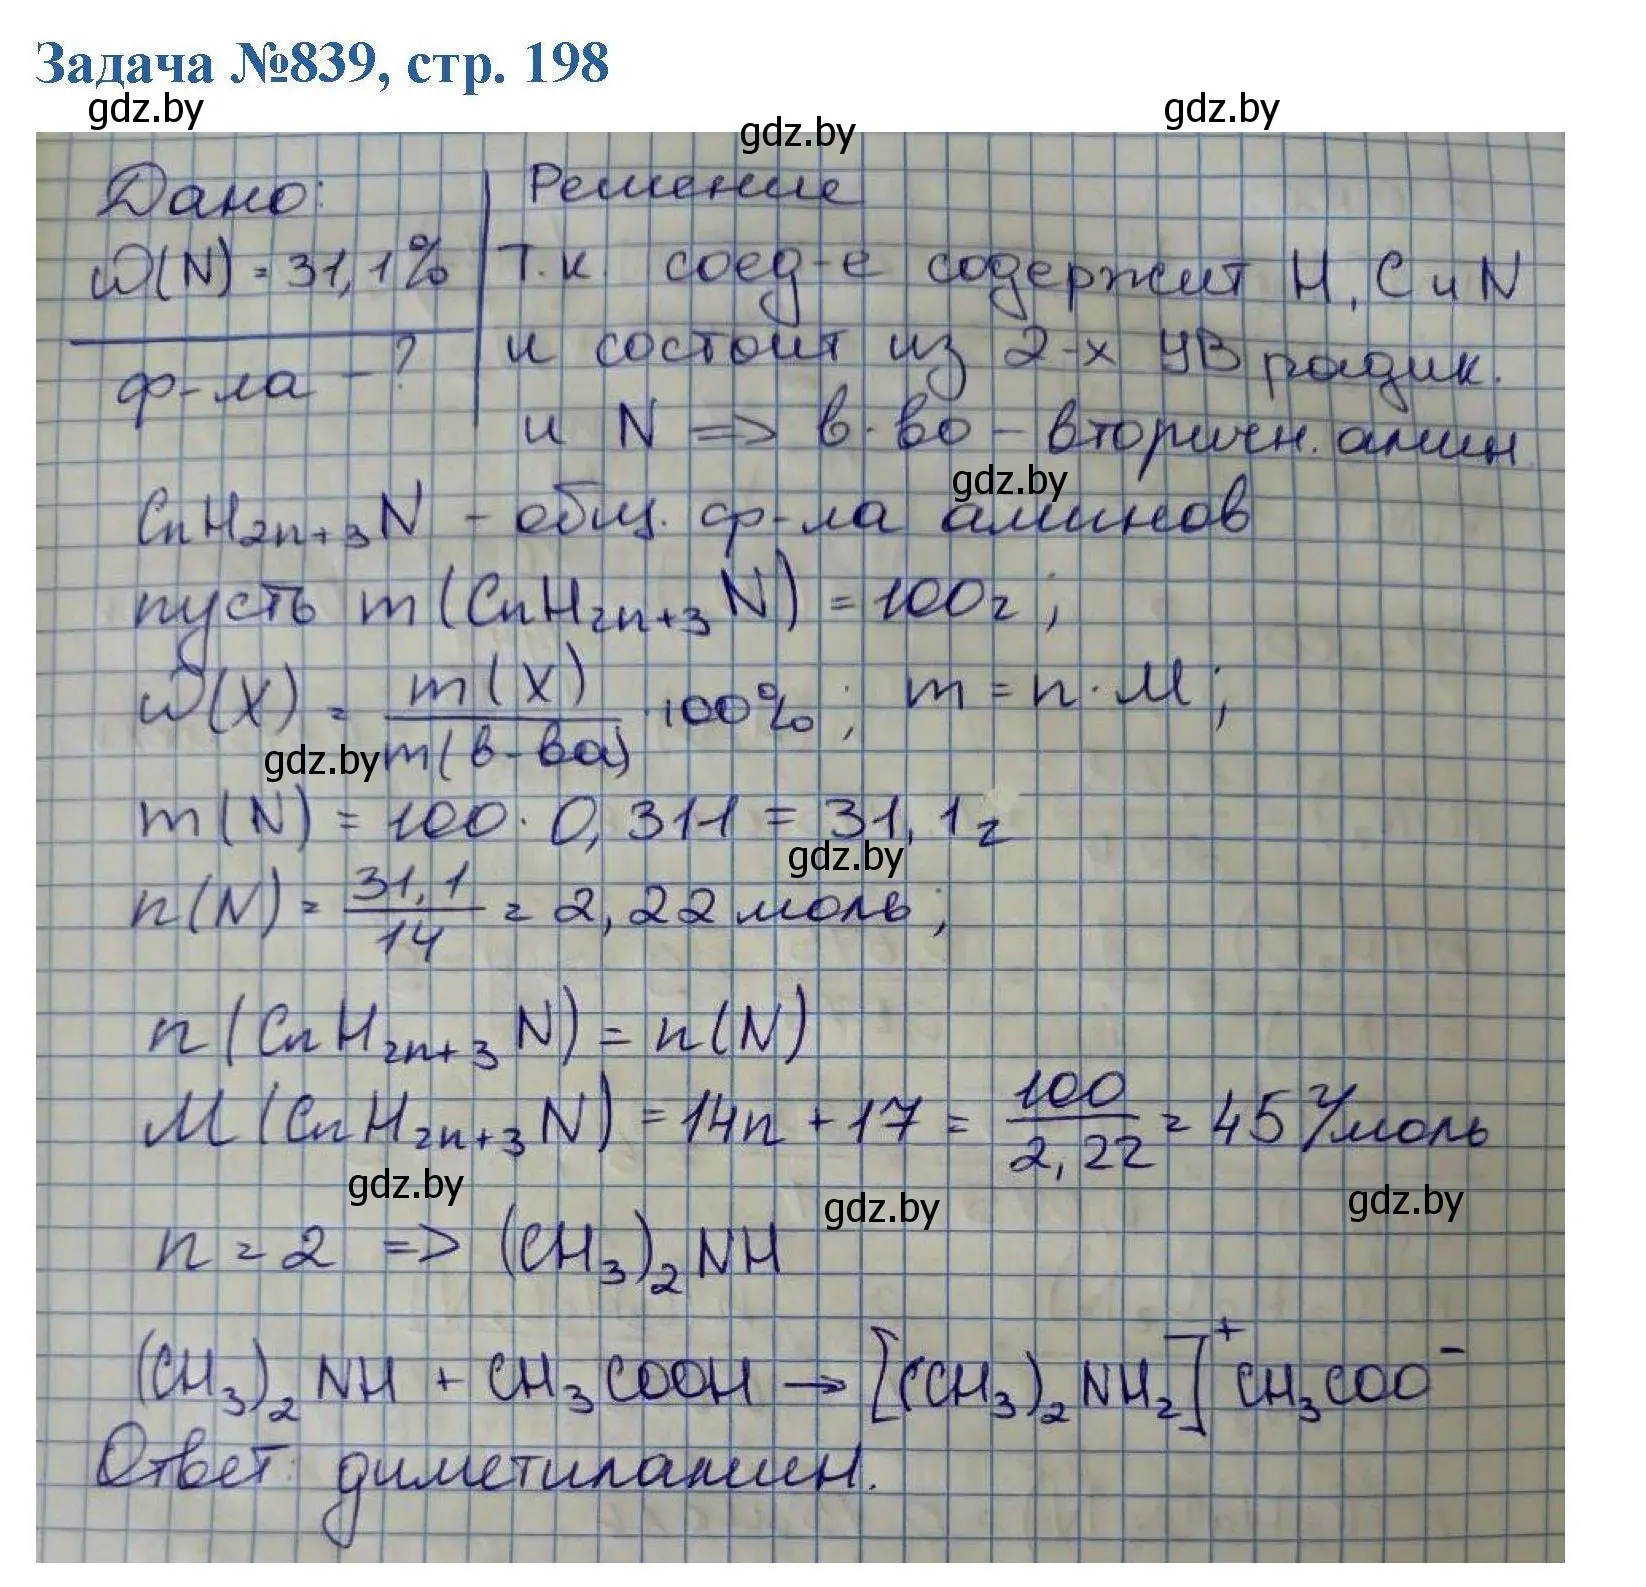 Задача №839, стр. 198
gdz.by
gdz.by
gdz.by
Дано:
Решение
ω(N) = 31,1%
ф-ла - ?
Т.к. соед-е содержит H, C и N
и состоит из 2-х УВ радик.
и N => в-во - вторичн. амин
gdz.by
CnH2n+3N - общ. ф-ла аминов
пусть m(CnH2n+3N) = 100г;
ω(X) = m(X)/m(в-ва) · 100%; m = n · M;
gdz.by
m(N) = 100 · 0,311 = 31,1г
gdz.by
n(N) = 31,1/14 = 2,22 моль;
n(CnH2n+3N) = n(N)
M(CnH2n+3N) = 14n + 17 = 100/2,22 = 45 г/моль
gdz.by
gdz.by
gdz.by
n = 2 => (CH3)2NH
(CH3)2NH + CH3COOH → [(CH3)2NH2]⁺CH3COO⁻
Ответ: диметиламин.